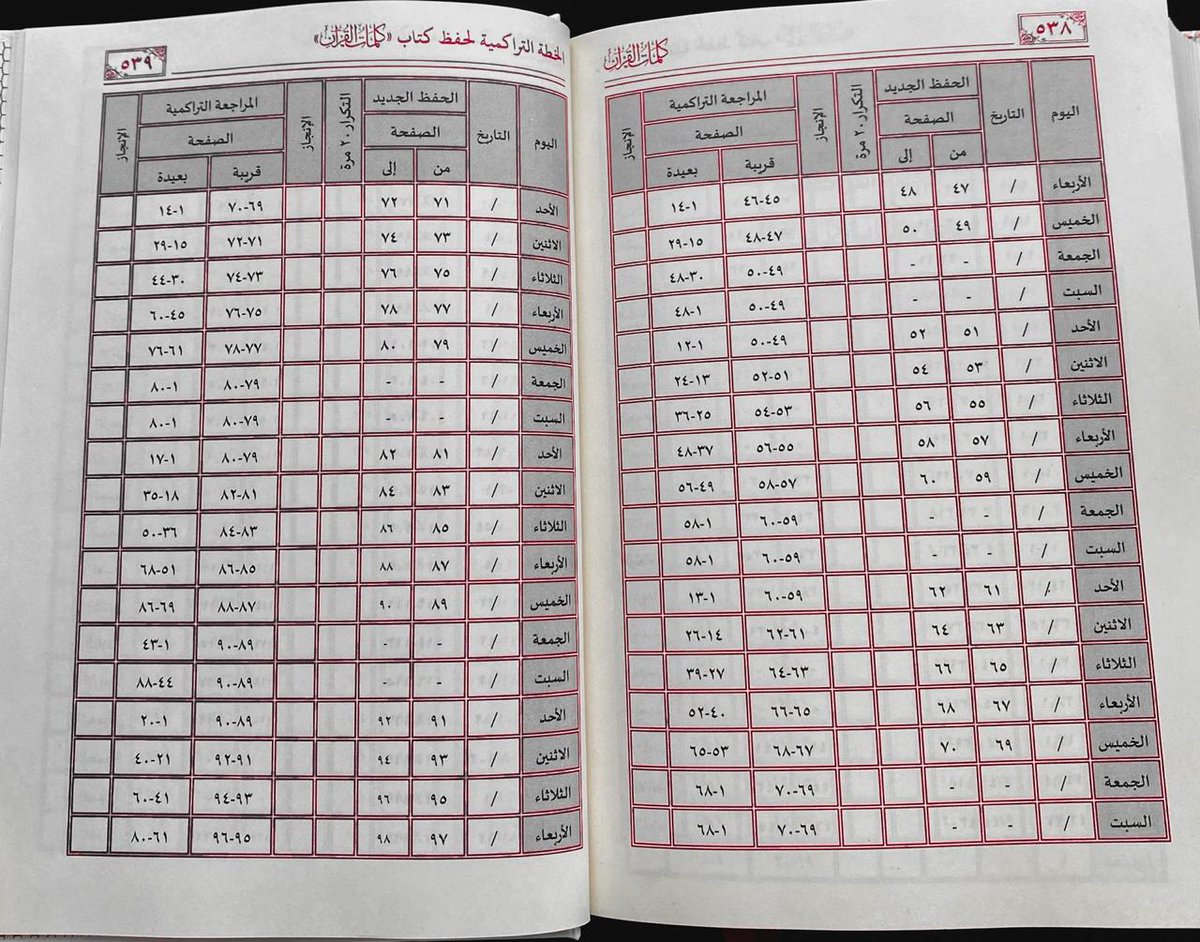 ٥٣٨
كلمات القرآن
اليوم التاريخ الحفظ الجديد التكرار ٢٠ مرة الإنجاز المراجعة التراكمية الإنجاز
الصفحة الصفحة
من إلى قريبة بعيدة
الأربعاء / ٤٧ ٤٨ ٤٥-٤٦ ١-١٤
الخميس / ٤٩ ٥٠ ٤٧-٤٨ ١٥-٢٩
الجمعة / - - ٤٩-٥٠ ٣٠-٤٨
السبت / - - ٤٩-٥٠ ١-٤٨
الأحد / ٥١ ٥٢ ٤٩-٥٠ ١-١٢
الاثنين / ٥٣ ٥٤ ٥١-٥٢ ١٣-٢٤
الثلاثاء / ٥٥ ٥٦ ٥٣-٥٤ ٢٥-٣٦
الأربعاء / ٥٧ ٥٨ ٥٥-٥٦ ٣٧-٤٨
الخميس / ٥٩ ٦٠ ٥٧-٥٨ ٤٩-٥٦
الجمعة / - - ٥٩-٦٠ ١-٥٨
السبت / - - ٥٩-٦٠ ١-٥٨
الأحد / ٦١ ٦٢ ٥٩-٦٠ ١-١٣
الاثنين / ٦٣ ٦٤ ٦١-٦٢ ١٤-٢٦
الثلاثاء / ٦٥ ٦٦ ٦٣-٦٤ ٢٧-٣٩
الأربعاء / ٦٧ ٦٨ ٦٥-٦٦ ٤٠-٥٢
الخميس / ٦٩ ٧٠ ٦٧-٦٨ ٥٣-٦٥
الجمعة / - - ٦٩-٧٠ ١-٦٨
السبت / - - ٦٩-٧٠ ١-٦٨
الخطة التراكمية لحفظ كتاب «كلمات القرآن»
٥٣٩
اليوم التاريخ الحفظ الجديد التكرار ٢٠ مرة الإنجاز المراجعة التراكمية الإنجاز
الصفحة الصفحة
من إلى قريبة بعيدة
الأحد / ٧١ ٧٢ ٦٩-٧٠ ١-١٤
الاثنين / ٧٣ ٧٤ ٧١-٧٢ ١٥-٢٩
الثلاثاء / ٧٥ ٧٦ ٧٣-٧٤ ٣٠-٤٤
الأربعاء / ٧٧ ٧٨ ٧٥-٧٦ ٤٥-٦٠
الخميس / ٧٩ ٨٠ ٧٧-٧٨ ٦١-٧٦
الجمعة / - - ٧٩-٨٠ ١-٨٠
السبت / - - ٧٩-٨٠ ١-٨٠
الأحد / ٨١ ٨٢ ٧٩-٨٠ ١-١٧
الاثنين / ٨٣ ٨٤ ٨١-٨٢ ١٨-٣٥
الثلاثاء / ٨٥ ٨٦ ٨٣-٨٤ ٣٦-٥٠
الأربعاء / ٨٧ ٨٨ ٨٥-٨٦ ٥١-٦٨
الخميس / ٨٩ ٩٠ ٨٧-٨٨ ٦٩-٨٦
الجمعة / - - ٨٩-٩٠ ١-٤٣
السبت / - - ٨٩-٩٠ ٤٤-٨٨
الأحد / ٩١ ٩٢ ٨٩-٩٠ ١-٢٠
الاثنين / ٩٣ ٩٤ ٩١-٩٢ ٢١-٤٠
الثلاثاء / ٩٥ ٩٦ ٩٣-٩٤ ٤١-٦٠
الأربعاء / ٩٧ ٩٨ ٩٥-٩٦ ٦١-٨٠